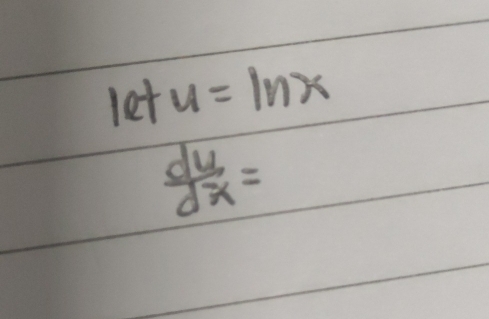 let u = ln x
du/dx =